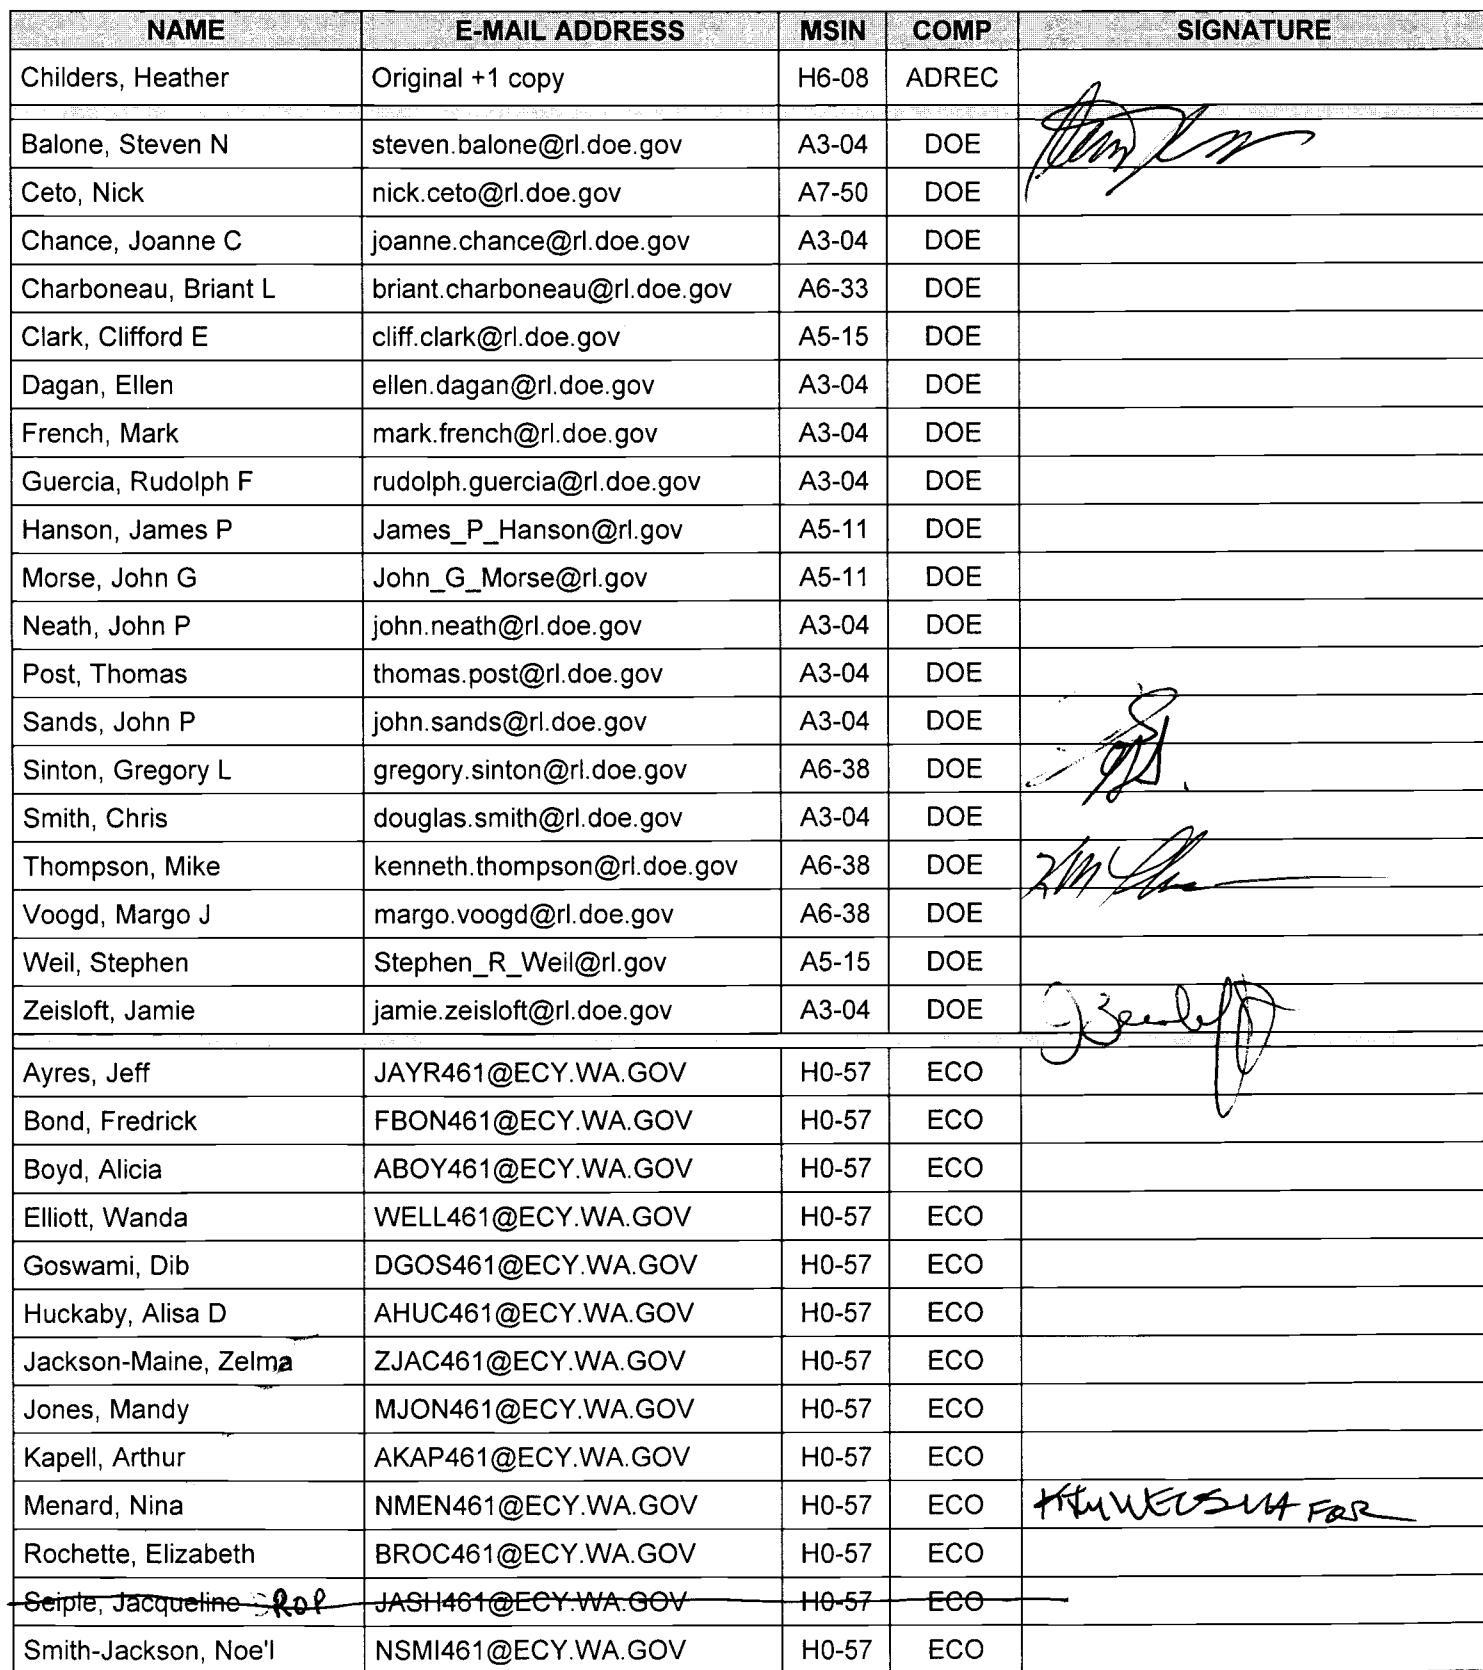 NAME E-MAIL ADDRESS MSIN COMP SIGNATURE
Childers, Heather Original +1 copy H6-08 ADREC
Balone, Steven N steven.balone@rl.doe.gov A3-04 DOE
Ceto, Nick nick.ceto@rl.doe.gov A7-50 DOE
Chance, Joanne C joanne.chance@rl.doe.gov A3-04 DOE
Charboneau, Briant L briant.charboneau@rl.doe.gov A6-33 DOE
Clark, Clifford E cliff.clark@rl.doe.gov A5-15 DOE
Dagan, Ellen ellen.dagan@rl.doe.gov A3-04 DOE
French, Mark mark.french@rl.doe.gov A3-04 DOE
Guercia, Rudolph F rudolph.guercia@rl.doe.gov A3-04 DOE
Hanson, James P James_P_Hanson@rl.gov A5-11 DOE
Morse, John G John_G_Morse@rl.gov A5-11 DOE
Neath, John P john.neath@rl.doe.gov A3-04 DOE
Post, Thomas thomas.post@rl.doe.gov A3-04 DOE
Sands, John P john.sands@rl.doe.gov A3-04 DOE
Sinton, Gregory L gregory.sinton@rl.doe.gov A6-38 DOE
Smith, Chris douglas.smith@rl.doe.gov A3-04 DOE
Thompson, Mike kenneth.thompson@rl.doe.gov A6-38 DOE
Voogd, Margo J margo.voogd@rl.doe.gov A6-38 DOE
Weil, Stephen Stephen_R_Weil@rl.gov A5-15 DOE
Zeisloft, Jamie jamie.zeisloft@rl.doe.gov A3-04 DOE
Ayres, Jeff JAYR461@ECY.WA.GOV H0-57 ECO
Bond, Fredrick FBON461@ECY.WA.GOV H0-57 ECO
Boyd, Alicia ABOY461@ECY.WA.GOV H0-57 ECO
Elliott, Wanda WELL461@ECY.WA.GOV H0-57 ECO
Goswami, Dib DGOS461@ECY.WA.GOV H0-57 ECO
Huckaby, Alisa D AHUC461@ECY.WA.GOV H0-57 ECO
Jackson-Maine, Zelma ZJAC461@ECY.WA.GOV H0-57 ECO
Jones, Mandy MJON461@ECY.WA.GOV H0-57 ECO
Kapell, Arthur AKAP461@ECY.WA.GOV H0-57 ECO
Menard, Nina NMEN461@ECY.WA.GOV H0-57 ECO FOR
Rochette, Elizabeth BROC461@ECY.WA.GOV H0-57 ECO
Seiple, Jacqueline JASH461@ECY.WA.GOV H0-57 ECO
Smith-Jackson, Noe'l NSMI461@ECY.WA.GOV H0-57 ECO